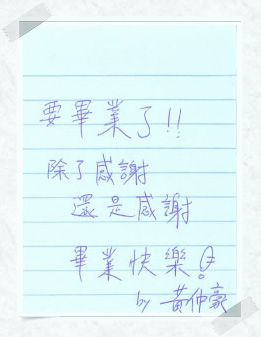 要畢業了!!
除了感謝
還是感謝
畢業快樂!
by 黃仲豪